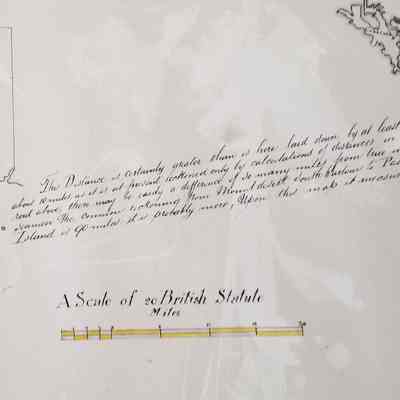 The Distance is certainly greater than is here laid down by at least
about 10 miles as it is at present reckoned only by calculations of distances in
above, there may be easily a difference of so many miles from true
seamen The common reckoning from Mount desert South harbour to
Island is 90 miles it is probably more, upon this
A Scale of 20 British Statute
Miles